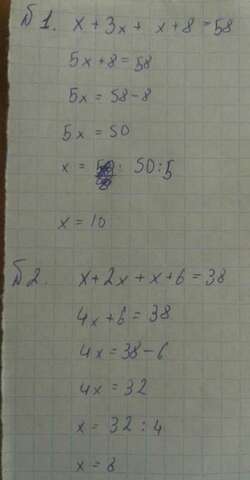 Б 1. x + 3x + x + 8 = 58
5x + 8 = 58
5x = 58 - 8
5x = 50
x = 50 : 5
x = 10
Б 2. x + 2x + x + 6 = 38
4x + 6 = 38
4x = 38 - 6
4x = 32
x = 32 : 4
x = 8